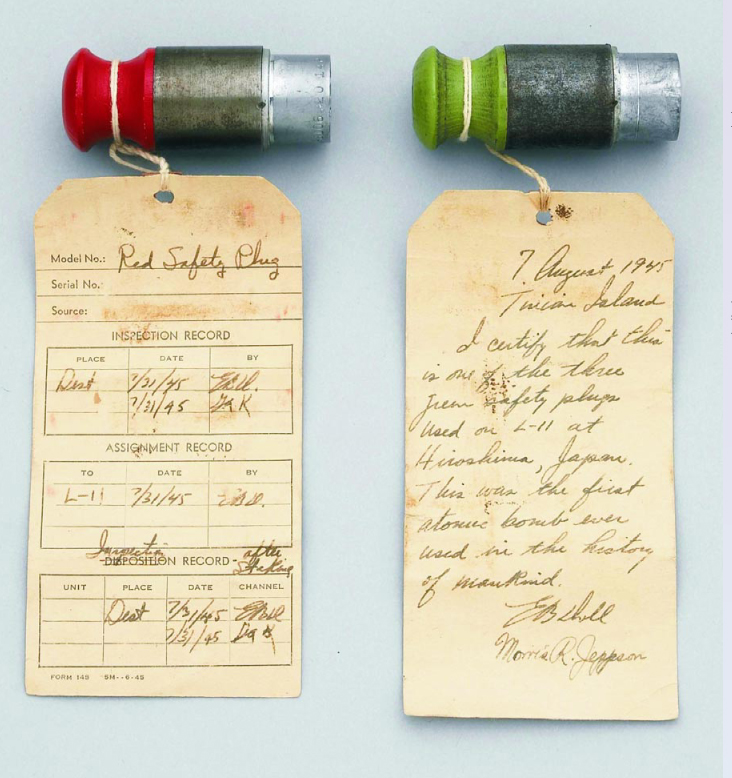 Model No.: Red Safety Plug
Serial No.
Source:
INSPECTION RECORD
PLACE DATE BY
Dest 7/31/45
7/31/45
ASSIGNMENT RECORD
TO DATE BY
L-11 7/31/45
Inspection after
DISPOSITION RECORD - Striking
UNIT PLACE DATE CHANNEL
Dest 7/31/45
7/31/45
FORM 149 SH--6-45
7 August 1945
Tinian Island
I certify that this
is one of the three
green safety plugs
used on L-11 at
Hiroshima, Japan.
This was the first
atomic bomb ever
used in the history
of mankind.
Morris R. Jeppson